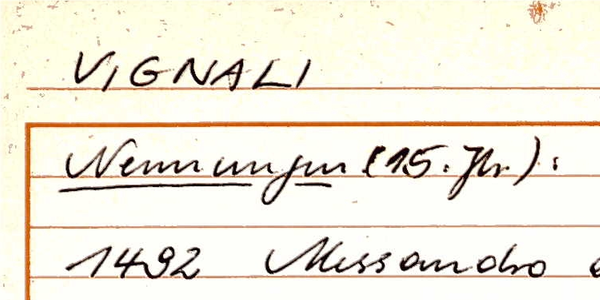 VIGNALI
Nennungen (15. Jh.):
1492 Alessandro